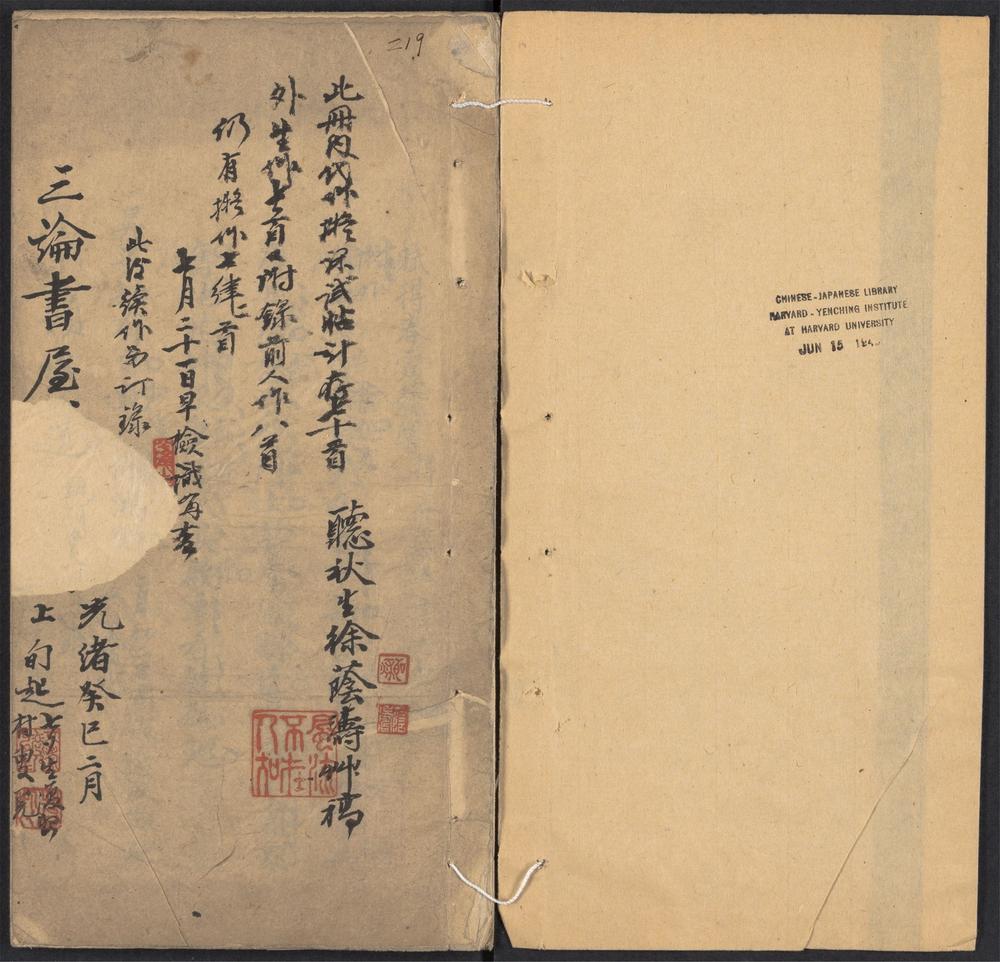 二19
此冊內代作擬課試帖計存七十首
聽秋生徐蔭濤艸稿
外生作七首又附錄前人作八首
仍有擬作七律二首
七月二十一日早檢識
此後續作另訂錄
三論書屋
光緒癸巳二月
上旬起
CHINESE-JAPANESE LIBRARY
HARVARD-YENCHING INSTITUTE
AT HARVARD UNIVERSITY
JUN 15